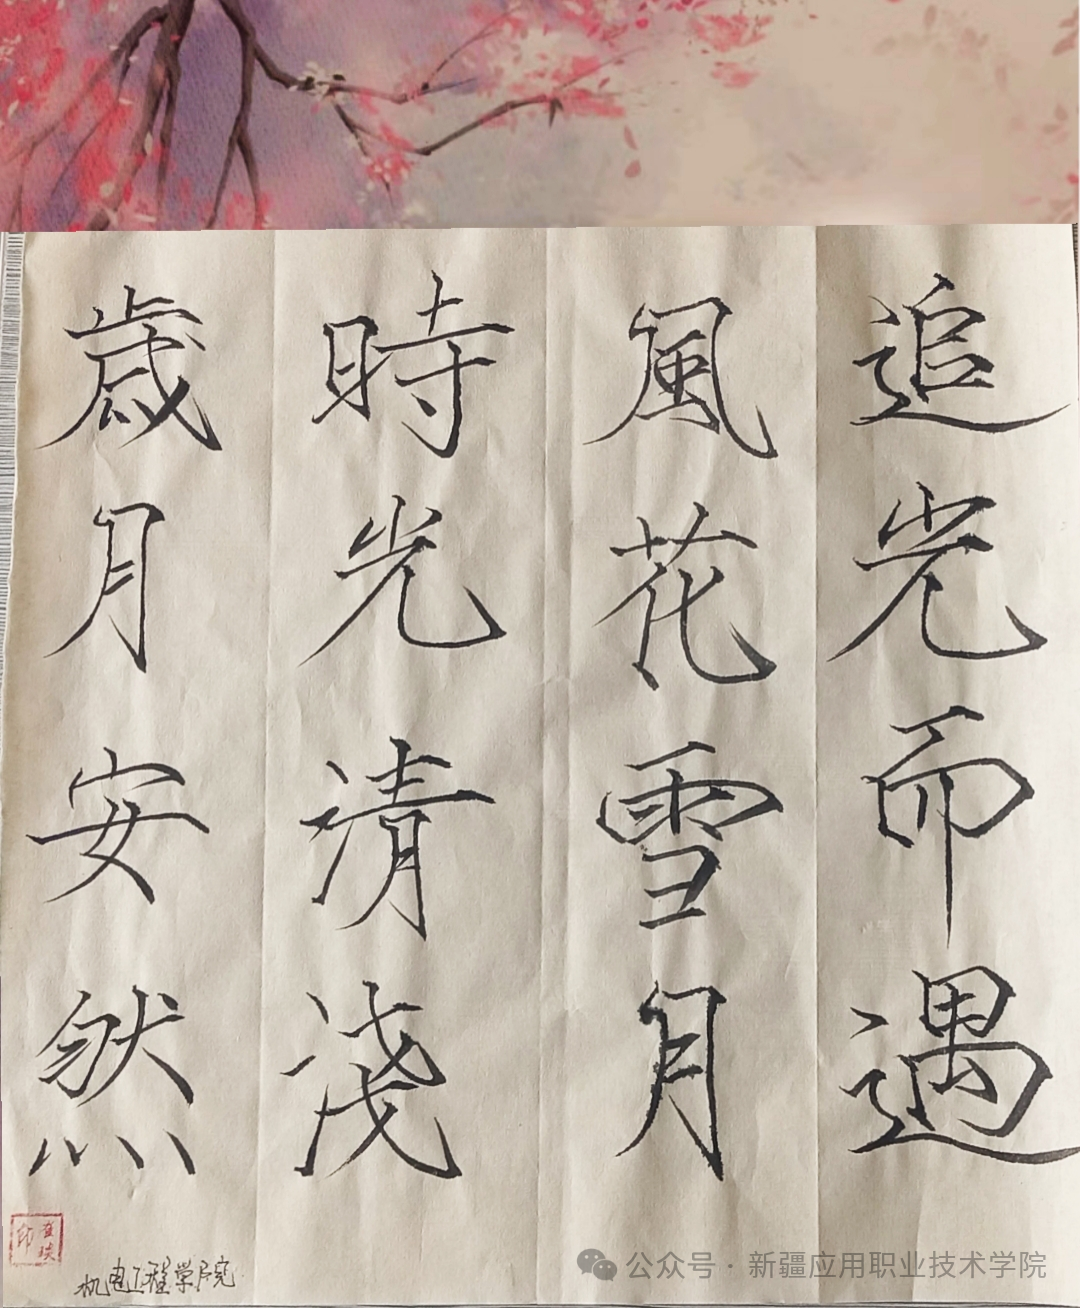 追光而遇
風花雪月
時光清淺
歳月安然
机电工程学院
公众号·新疆应用职业技术学院